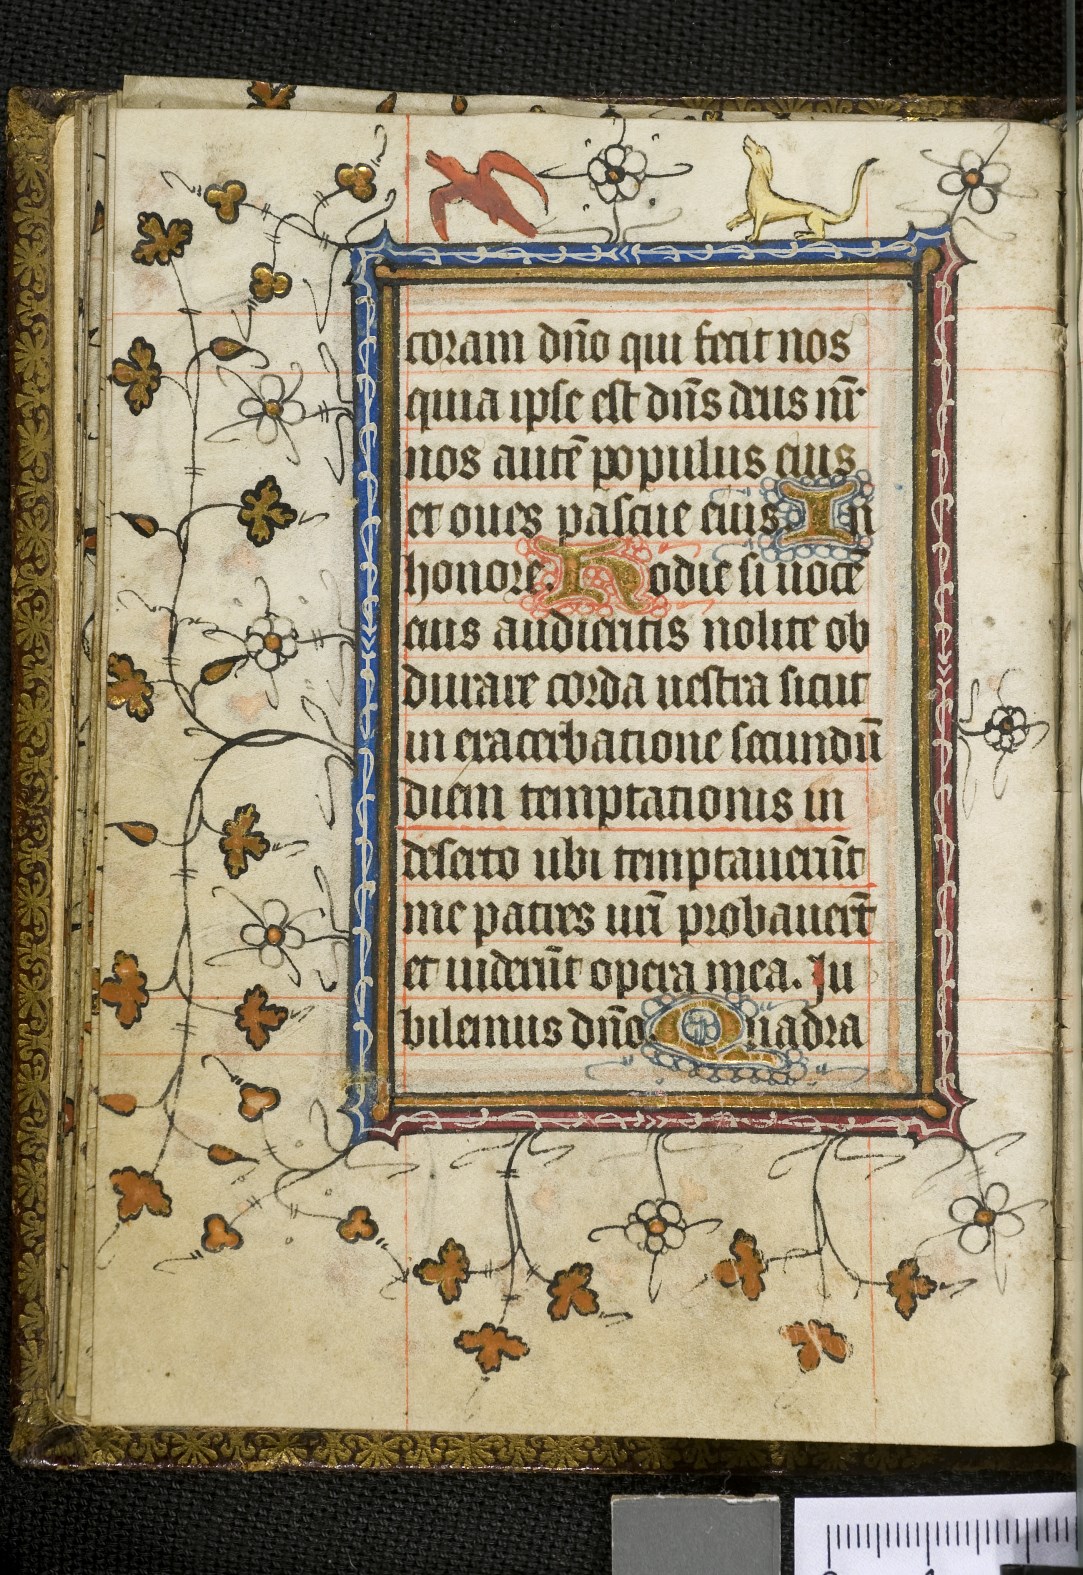 coram dño qui fecit nos
quia ipse est dñs deus nr̃
nos autẽ populus eius
et oues pascue eius In
honore. Hodie si uocẽ
eius audieritis nolite ob
durare corda uestra sicut
in exacerbatione secundũ
diem temptationis in
deserto ubi temptauerũt
me patres uri̅ probauer̃t
et uiderũt opera mea. Iu
bilemus dño. Quadra